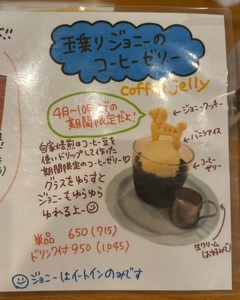 玉乗りジョニーの
コーヒーゼリー
coffee jelly
4月〜10月までの
期間限定だよ!
←ジョニークッキー
←バニラアイス
←コーヒーゼリー
自家焙煎のコーヒー豆を
使いドリップして作った
期間限定のコーヒーゼリー
グラスをゆらすと
ジョニーもゆらゆら
ゆれるよー
生クリーム
(お好みで)
単品 650(715)
ドリンク付 950(1,045)
ジョニーはイートインのみです